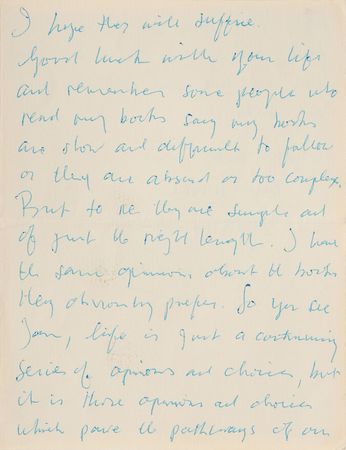 I hope this will suffice.
Good luck with your life
and remember some people who
read my books say my books
are slow and difficult to follow
or they are absurd or too complex.
But to me they are simple and
of just the right length. I have
the same opinions about the books
they obviously prefer. So you see
, life is just a continuing
series of opinions and choices, but
it is those opinions and choices
which pave the pathways of our